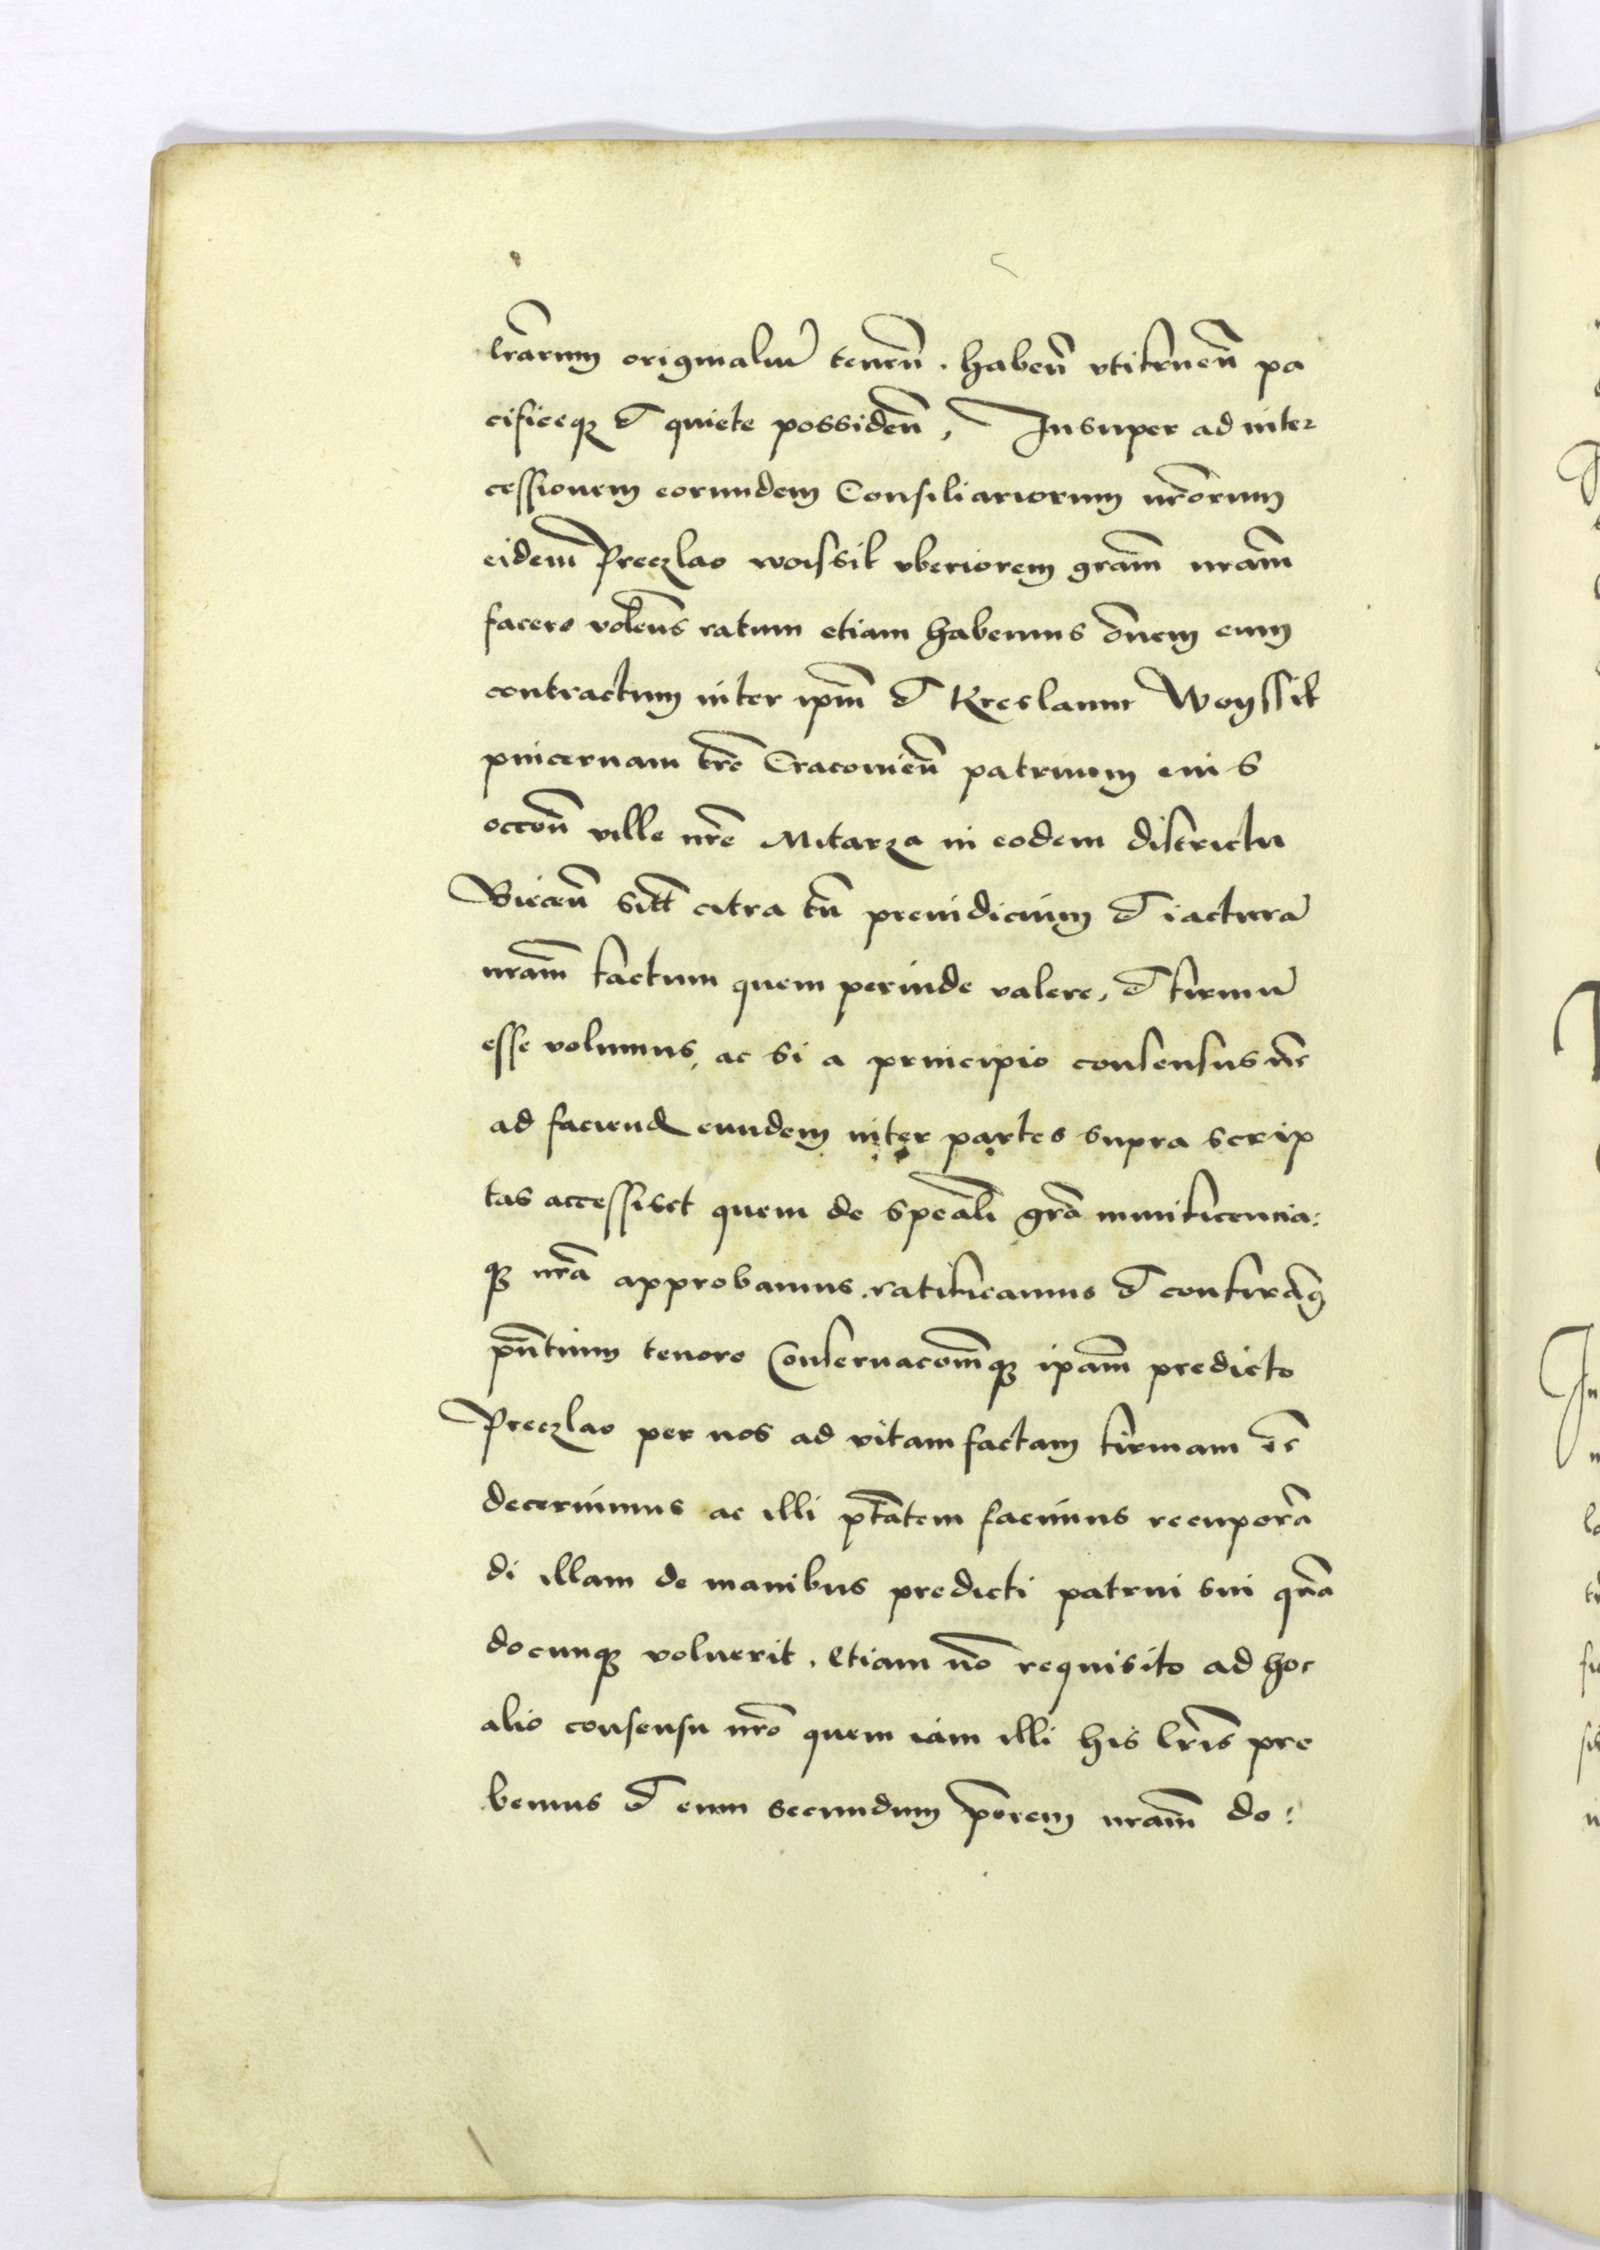 lr̃arum originaliu̅ tenen̄. haben̄ vtifruen̄ pa
cificeq3 et quiete possiden̄, Insuper ad inter
cessionem eorundem Consiliariorum nr̃orum
eidem̄ Preczlao woissik vberiorem gram̄ nram̄
facere volen̄s ratum etiam habemus om̄em eum
contractum inter ipm̄ et Kreslaum Woyssik
pincernam tr̃e Cracouien̄ patruum eius
occoñ ville nr̃e Mitarza in eodem districtu
Biecen̄ sitt̄ citra tn̄ preiudicium et iactura̅
nram̄ factum quem perinde valere, et firmu̅
esse volumus, ac si a principio consensus nr̃
ad faciend eundem inter partes supra scrip
tas accessiset quem de speāli gr̃a munificencia:
q3 nr̃a approbamus, ratificamus et confirām9
pn̄tium tenore Conseruacom̄q3 ipam̄ predicto
Preczlao per nos ad vitam factam firmam ēē
decernimus ac illi pt̄atem facimus recuperā
di illam de manibus predicti patrui sui qn̄a
docunq3 voluerit, etiam nō requisito ad hoc
alio consensu nr̃o quem iam illi his lr̃is pre
bemus et eum secundum prēem nram̄ do: